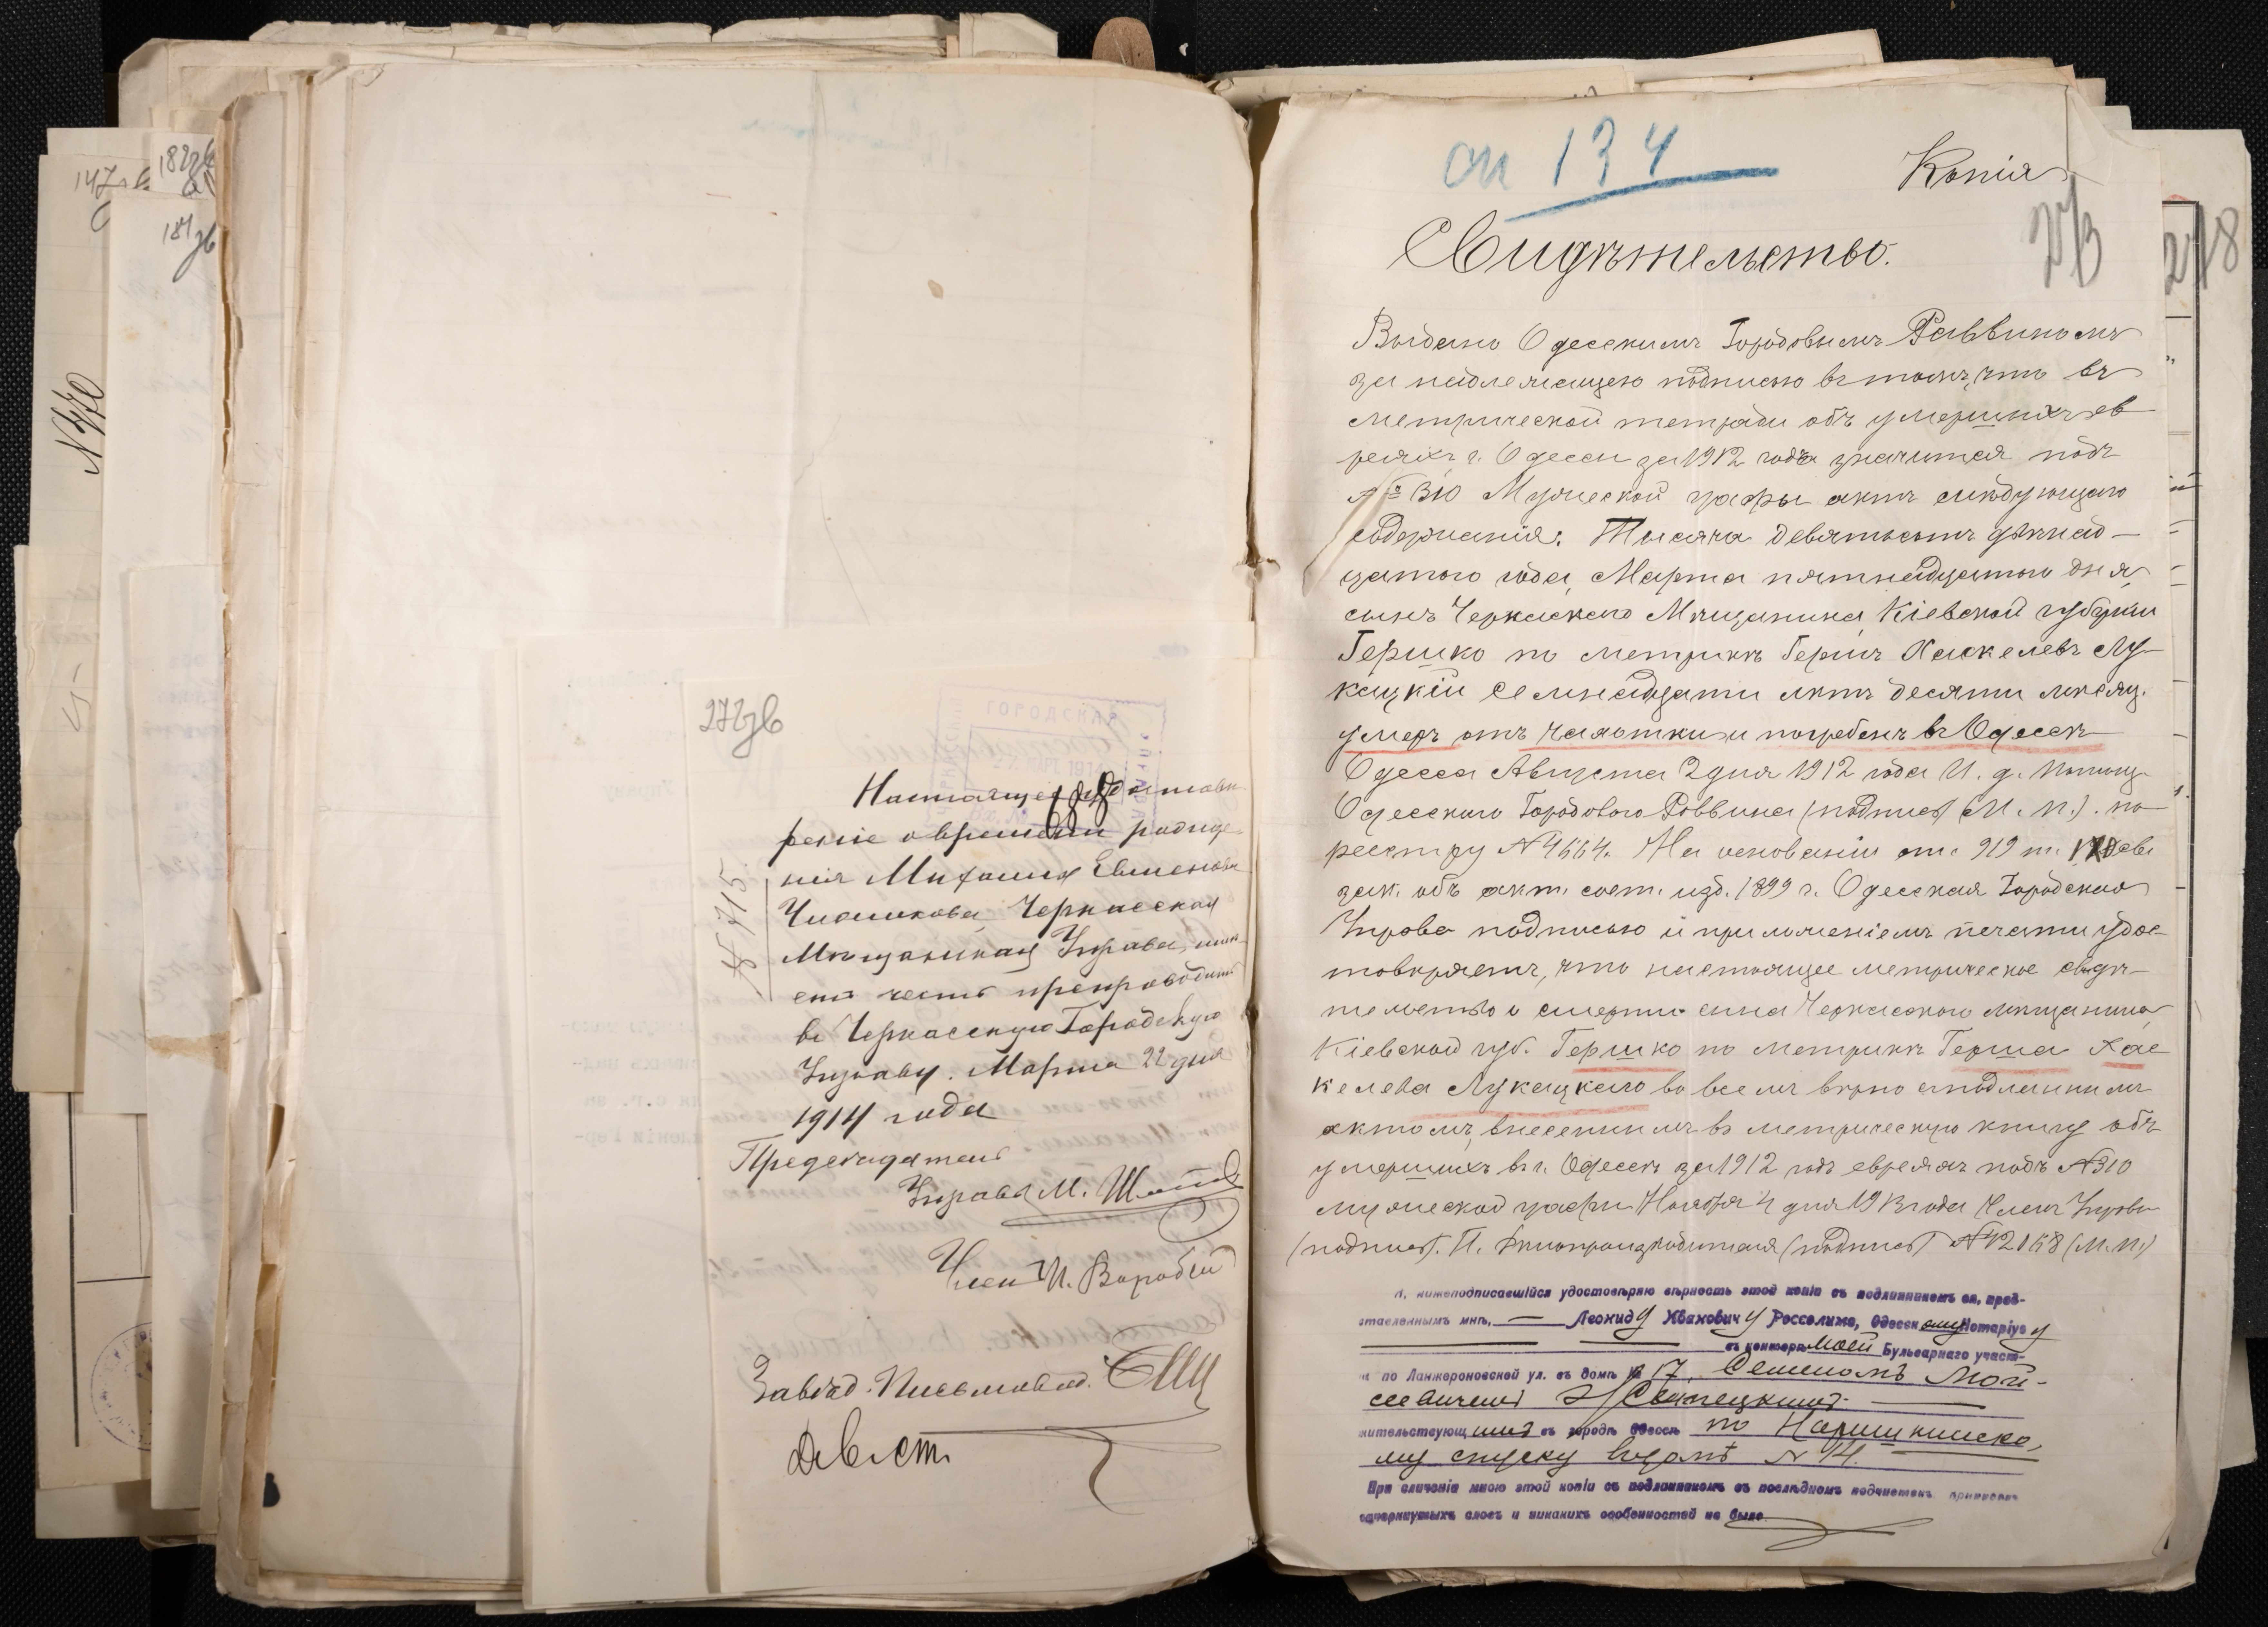 147
182
181
N 770
272
ГОРОДСКАЯ
1914
Настоящее удостовѣ
реніе о времени рожде
нія Михаила Евменова
Чиликова, Черкасская
Мѣщанская Управа, имѣ
етъ честь препроводить
въ Черкасскую Городскую
Управу. Марта 22 дня
1914 года
№ 715
Предсѣдатель
Управы М.
Член И. Воробей
Завѣд. Письмовод.
Копія
134
Свидѣтельство.
273
Выдано Одесскимъ Городовымъ Раввиномъ
за надлежащею подписью въ томъ, что въ
метрической тетради объ умершихъ ев
реяхъ г. Одессы за 1912 годъ значится подъ
№ 310 Мужеской графы актъ слѣдующаго
содержанія: Тысяча девятьсотъ двѣнад-
цатого года, Марта пятнадцатого дня,
сынъ Черкаскаго Мѣщанина, Кіевской губерніи
Гершко по метрикѣ Гершъ Хаскелевъ Лу-
кацкій семнадцати лѣтъ десяти мѣсяц.
умеръ отъ чахотки и погребенъ въ Одессѣ
Одесса Августа 2 дня 1912 года И. д. Помощ.
Одесскаго Городового Раввина (подпись) (М. П.). по
реестру № 4664. На основаніи ст. 919 т. IX св.
зак. объ акт. сост. изд. 1899 г. Одесская Городская
Управа подписью и приложеніемъ печати удос-
товѣряетъ, что настоящее метрическое свидѣ-
тельство о смерти сына Черкасского мѣщанина,
Кіевской губ. Гершко по метрикѣ Герша Хас
келева Лукацкаго во всемъ вѣрно съ подлиннымъ
актомъ, внесеннымъ въ метрическую книгу объ
умершихъ въ г. Одессѣ за 1912 годъ евреяхъ подъ № 310
мужеской графы Ноября 4 дня 1913 года Членъ Управы
(подпись). П. дѣлопроизводителя (подпись) № 12168 (М. П.)
Я, нижеподписавшійся удостовѣряю вѣрность этой копіи съ подлинникомъ ея, пред-
ставленнымъ мнѣ, — Леониду Ивановичу Росселино, Одесскому Нотаріусу
въ конторѣ моей Бульварнаго участ-
по Ланжероновской ул. въ домѣ № 17, Семеномъ Мой-
сеевичемъ
жительствующимъ въ городѣ Одессѣ по Нарышкинско
му спуску въ домѣ № 14.
При сличеніи мною этой копіи съ подлинникомъ въ послѣднемъ подчистокъ приписокъ
зачеркнутыхъ словъ и никакихъ особенностей не было.